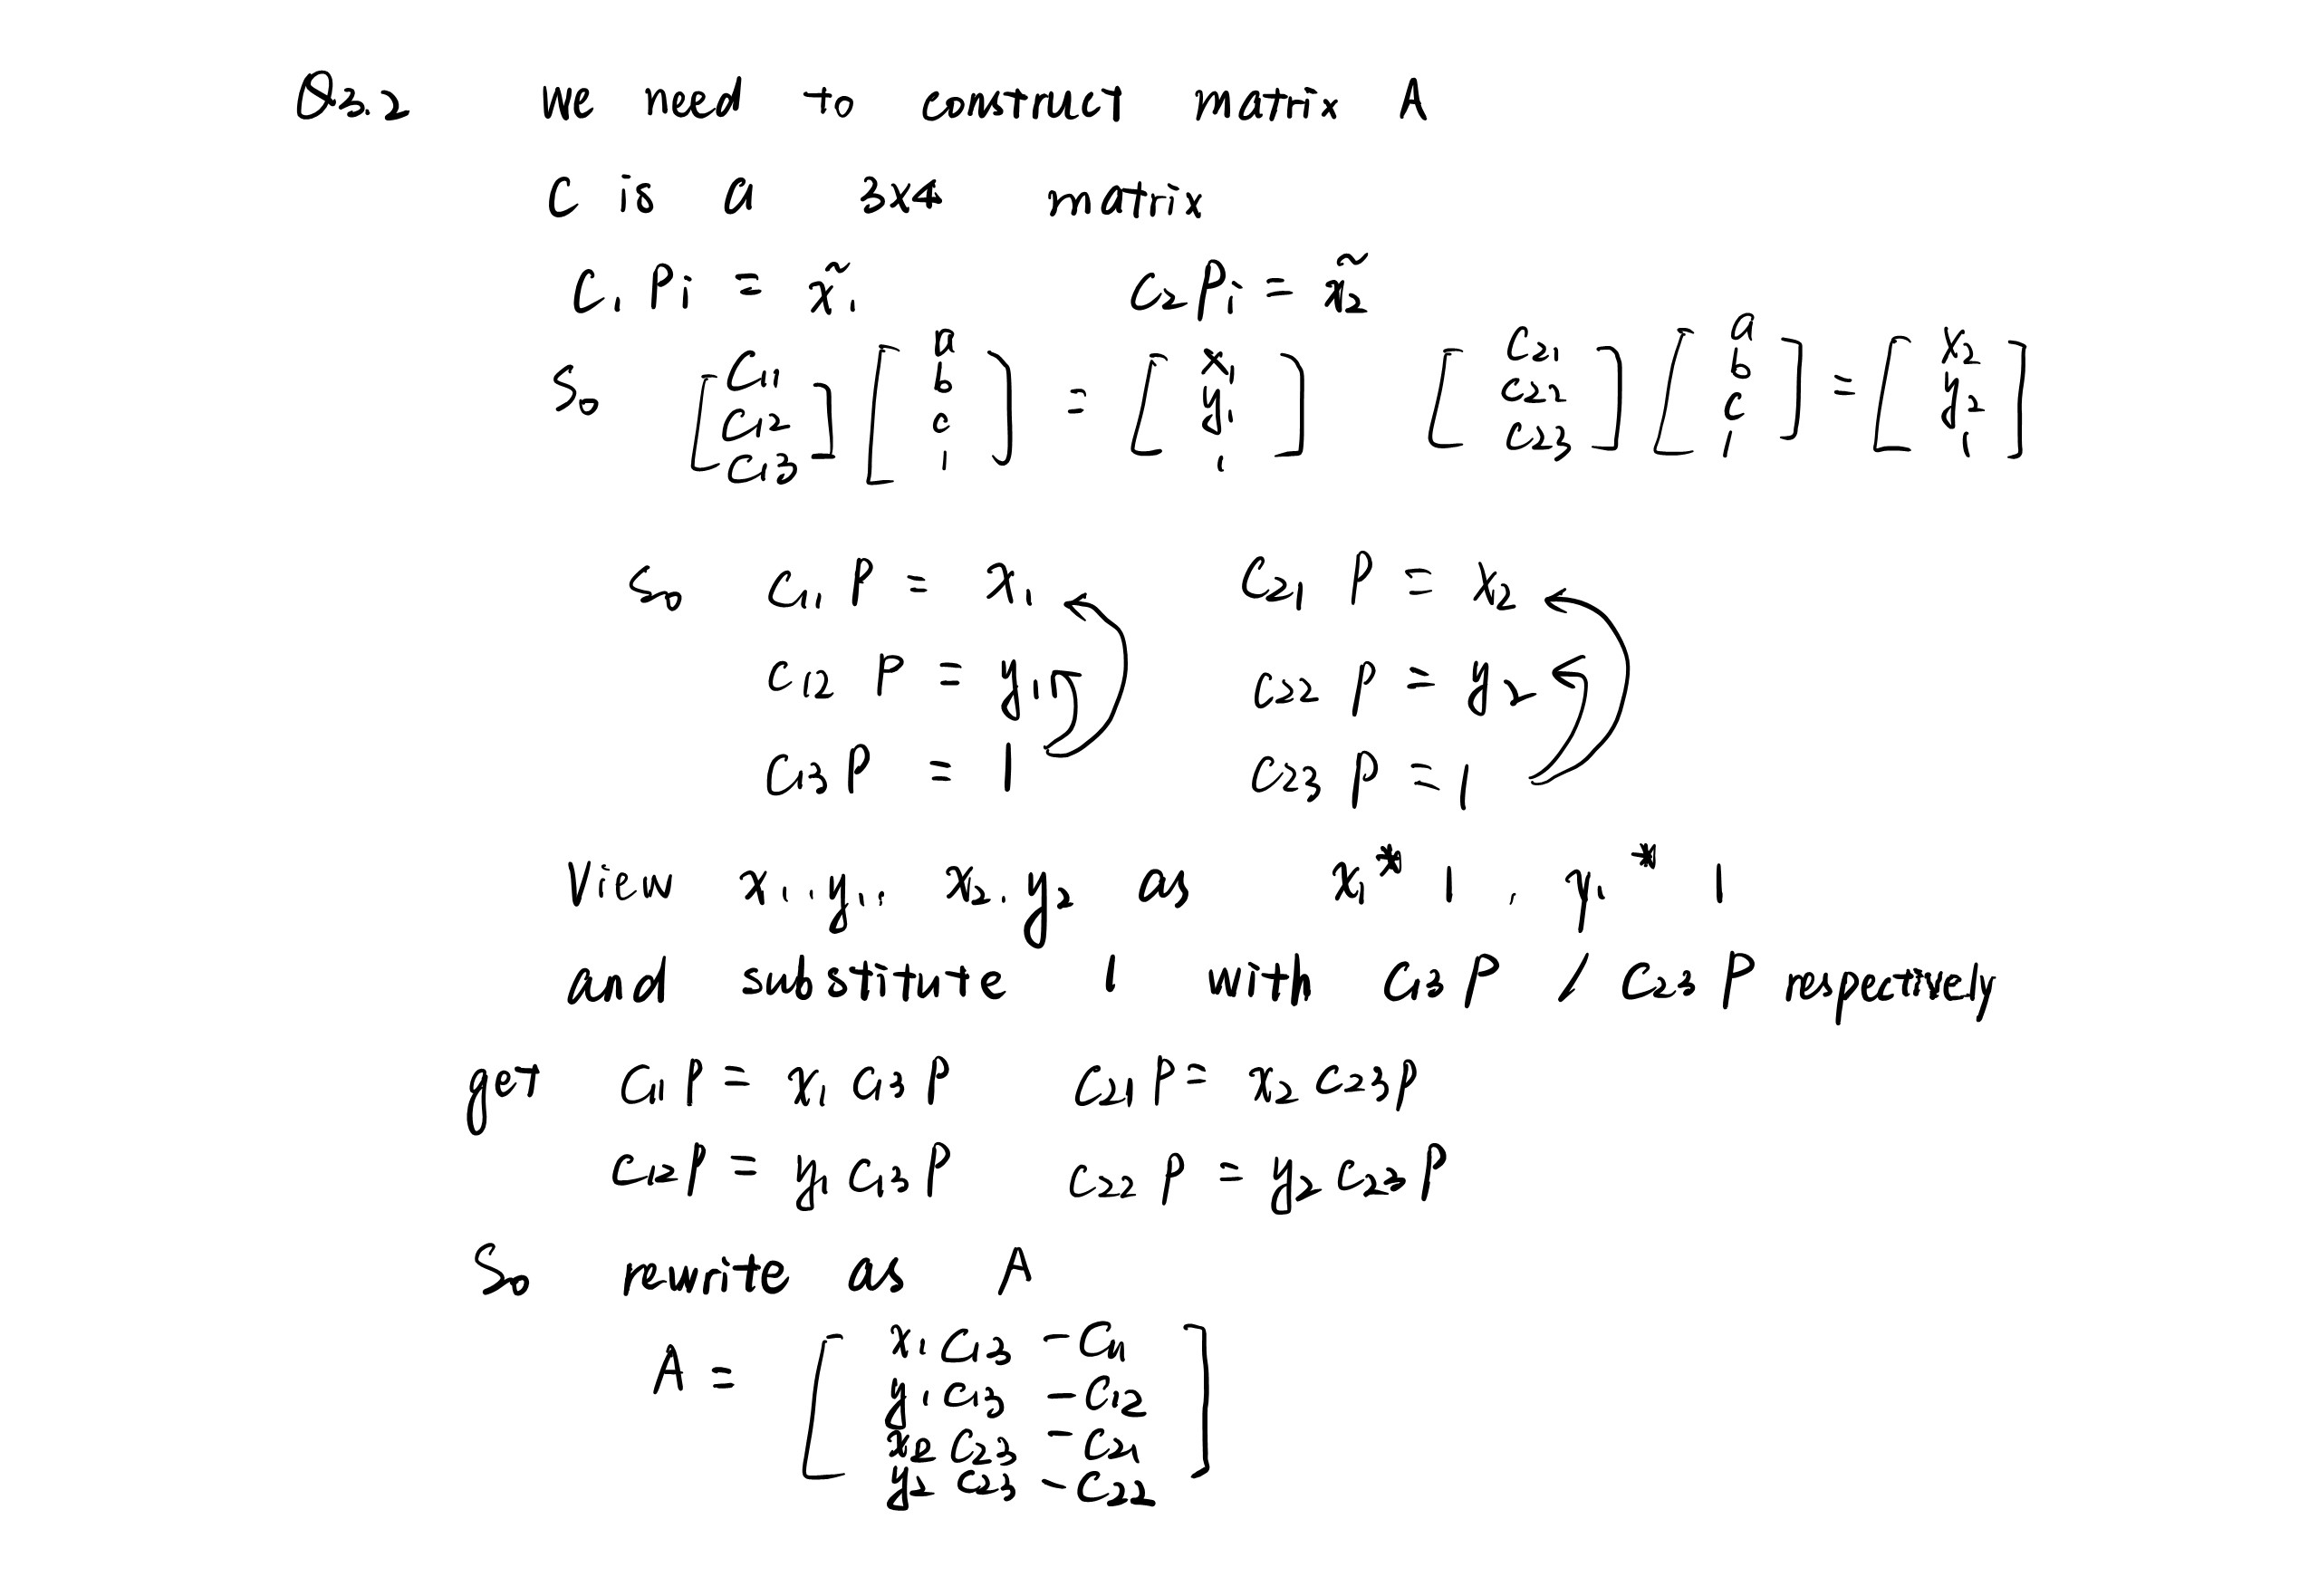 Q3.2 We need to construct matrix A
C is a 3x4 matrix
C₁ Pi = x̃₁ C₂ Pi = x̃₂
So [C₁₁ C₁₂ C₁₃] [a b c 1] = [x₁ y₁ 1] [C₂₁ C₂₂ C₂₃] [a b c 1] = [x₂ y₂ 1]
So C₁₁ P = x₁ C₂₁ P = x₂
C₁₂ P = y₁ C₂₂ P = y₂
C₁₃ P = 1 C₂₃ P = 1
View x₁, y₁, x₂, y₂ as x₁* 1, y₁* 1
and substitute 1 with C₁₃P / C₂₃P respectively
get C₁₁ P = x₁ C₁₃ P C₂₁ P = x₂ C₂₃ P
C₁₂ P = y₁ C₁₃ P C₂₂ P = y₂ C₂₃ P
So rewrite as A
A = [ x₁ C₁₃ - C₁₁
y₁ C₁₃ - C₁₂
x₂ C₂₃ - C₂₁
y₂ C₂₃ - C₂₂ ]